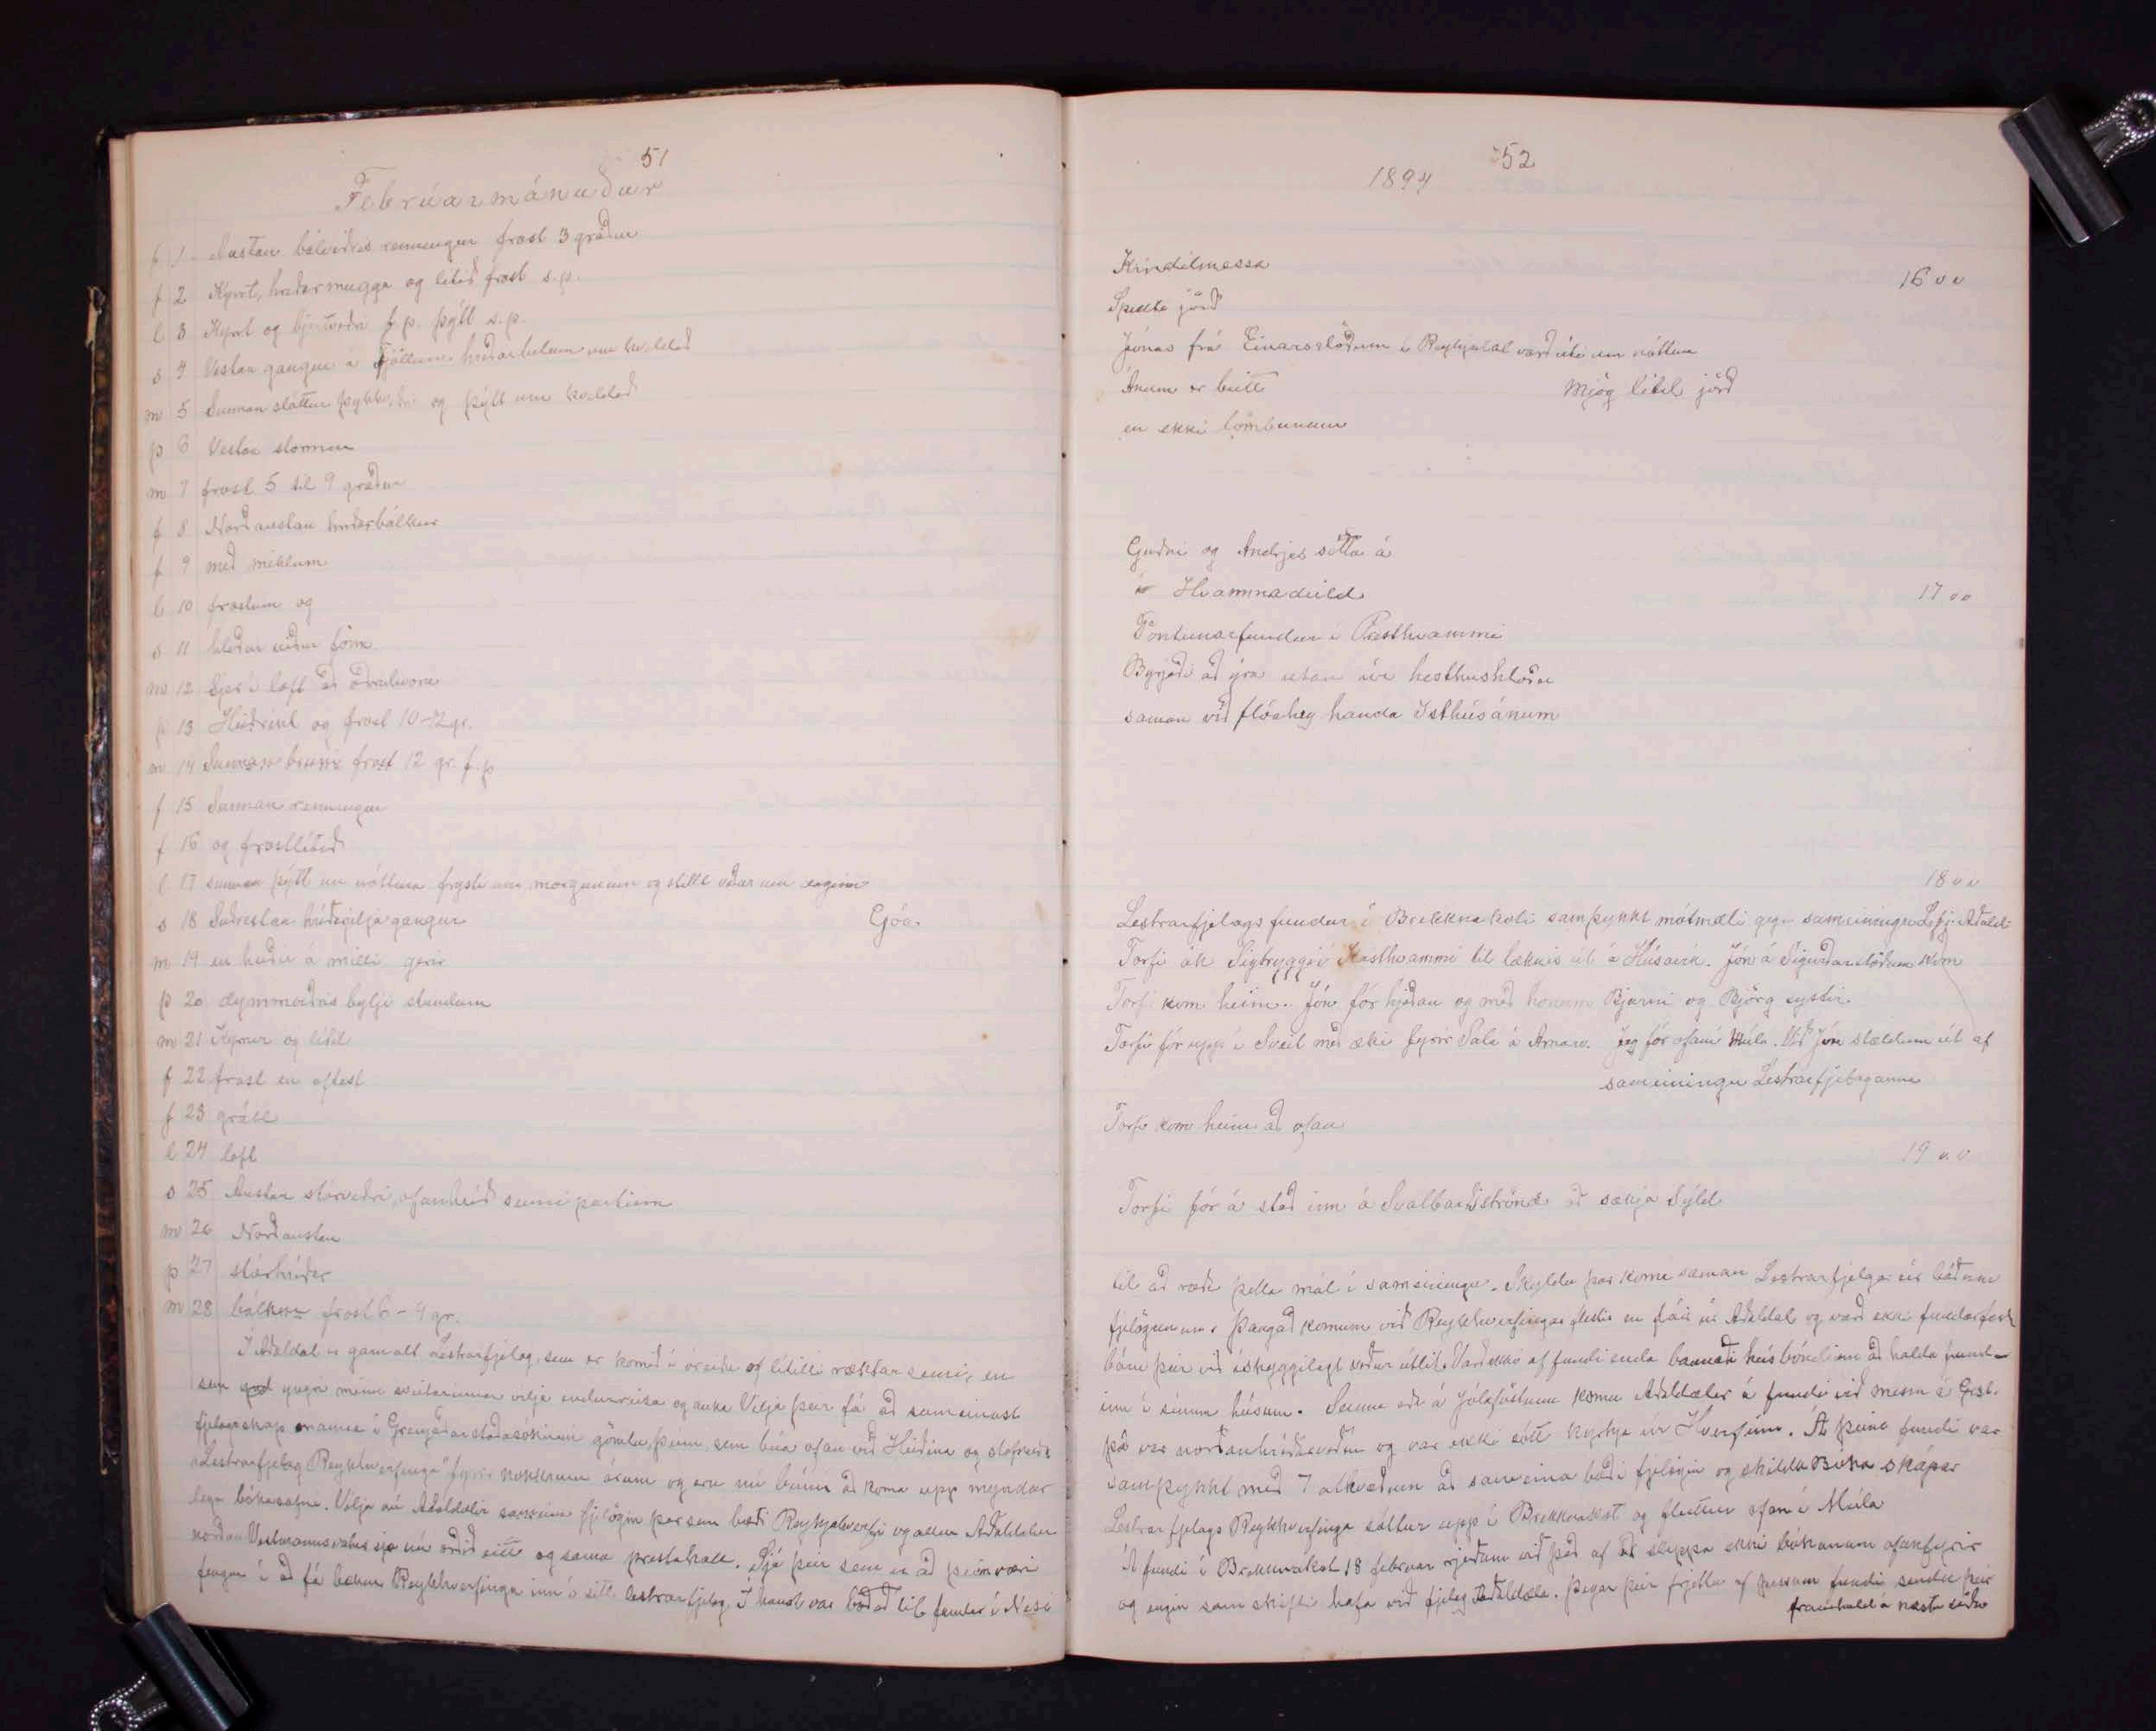 51
Febrúarmánuður
f 1 Austan bálviðris renningur frost 3 gráður
f 2 Kyrrt, hríðarmugga og lítið frost s.p.
l 3 Kyrrt og bjartviðri f.p. þýtt s.p.
s 4 Vestan gangur á fjöllum hríðar um kveldið
m 5 Sunnan sláttur og þýtt um kveldið
þ 6 Vestan stormur
m 7 frost 5 til 9 gráður
f 8 Norðaustan hríðarbálkur
f 9 með miklum
l 10 frostum og
s 11 hleður niður fönn
m 12 Sjer í loft að
þ 13 Heiðríkt og frost 10-12 gr.
m 14 Sunnan bruni frost 12 gr. f.p
f 15 Sunnan renningur
f 16 og frostlítið
l 17 sunnan þýtt um nóttina frysti um morguninn og stillt veður um daginn
s 18 Suðvestan hríðarbyljagangur Góa
m 19 en heiður á milli gerir
þ 20 dimmviðris bylji stundum
m 21 Kyrrur og lítil
f 22 frost en oftast
f 23 grátt
l 24 loft
s 25 Austan stórviðri, ofanhríð seinni partinn
m 26 Norðaustan
þ 27 stórhríðar
m 28 bálkur frost 6 - 9 gr.
Í Aðaldal er gamalt Lestrarfjelag, sem er komið í óreiðu af lítilli ræktarsemi, en
sem yngri menn sveitarinnar vilja endurreisa og auka Vilja þeir fá að sameinast
fjelagskap manna í Grenjaðarstaðasókninni gömlu, þeim, sem búa ofan við Heiðina og stofnuðu
"Lestrarfjelag Reykhverfinga" fyrir nokkrum árum og eru nú búnir að koma upp myndar
legu bókasafni. Vilja nú Aðaldælir sameina fjelögin þar sem bæði Reykjahverfi og allur Aðaldalur
norðan Vestmannsvatns sje nú orðið eitt og sama prestakall. Sjá þeir sem er að þeim væri
fengur í að fá bækur Reykhverfinga inn í sitt lestrarfjelag. Í haust var boðað til fundar í Nesi
52
1894
Kindilmessa
16 vv
Spillti jörð
Jónas frá Einarsstöðum í Reykjadal varð úti um nóttina
Ánum er beitt Mjög lítil jörð
en ekki lömbunum
Guðni og Andrjes sótta á
Hvammadeild
17 vv
Pöntunarfundur í Presthvammi
Byrjaði að gefa utan úr hesthúshlöðu
saman við flóahey handa Ísthúsánum
18 vv
Lestrarfjelagsfundur í Brekknakoti samþykkt mótmæli gegn sameiningu Lfj. Aðaldæla
Torfi ók Sigtryggi í Presthvammi til læknis út á Húsavík. Jón á Sigurðarstöðum kom
Torfi kom heim. Jón fór hjeðan og með honum Bjarni og Björg systir
Torfi fór upp í Sveit með æki fyrir Pala á Arnarv. Jeg fór ofaní Múla. Við Jón stældum út af
sameiningu Lestrarfjelaganna
Torfi kom heim að ofan
19 v.v
Torfi fór á stað inn á Svalbarðsströnd að sækja Síld
til að ræða þetta mál í sameiningu. Skyldu þar koma saman Lestrarfjelagar úr báðum
fjelögunum. Þangað komum við Reykhverfingar flestir en fáir úr Aðaldal og varð ekki fundarfært
báru þeir við ískyggilegt veður útlit. Varð ekki af fundi enda bannaði húsbóndinn að halda fund-
inn í sínum húsum. Seinna eða á Jólaföstunni komu Aðaldælir á fundi við messu á Grst.
þá var norðanhríðarveður og var ekki sótt kyrkja úr Hverfinu. Á þeim fundi var
samþykkt með 7 atkvæðum að sameina bæði fjelögin og skildi Bóka skápur
Lestrarfjelags Reykhverfinga sóttur upp í Brekknakot og fluttur ofan í Múla
Á fundi í Brekknakoti 18 febrúar rjeðum við það af að sleppa ekki bókunum ofanfyrir
og engin samskipti hafa við fjelag Aðaldæla. Þegar þeir frjettu af þessum fundi sendu þeir
framhald á næstu síðu